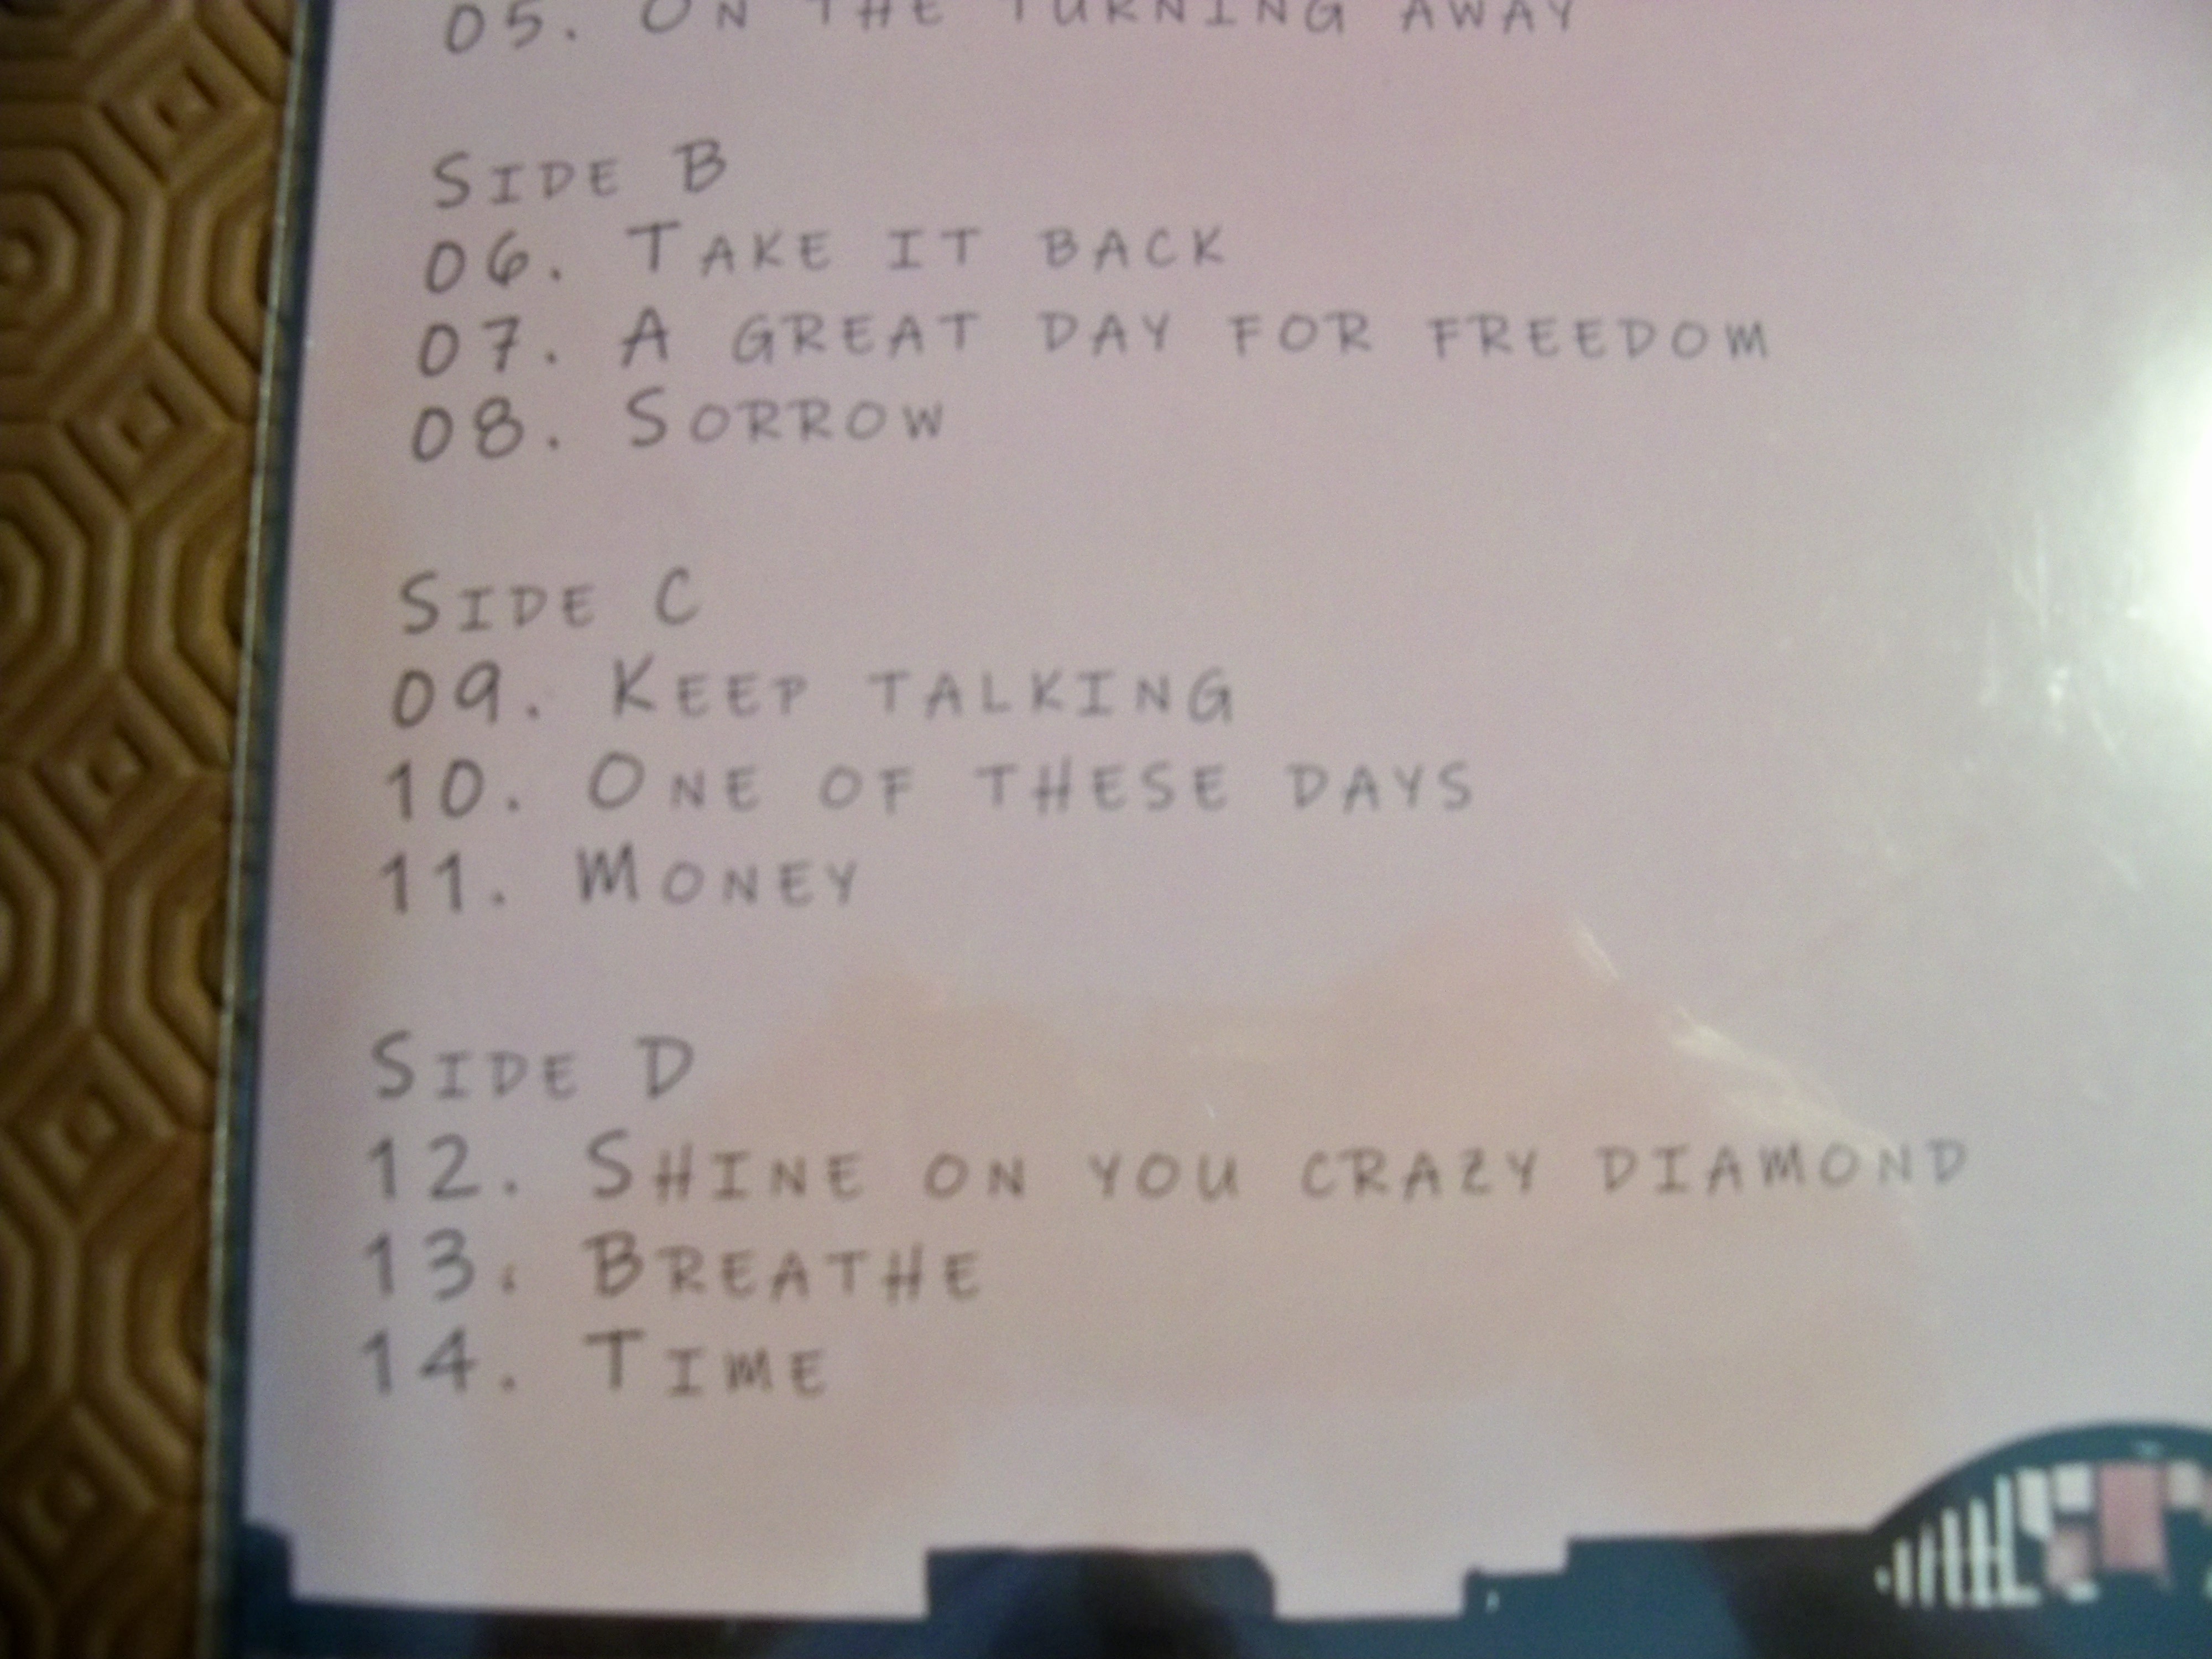 05. On the turning away
Side B
06. Take it back
07. A great day for freedom
08. Sorrow
Side C
09. Keep talking
10. One of these days
11. Money
Side D
12. Shine on you crazy diamond
13. Breathe
14. Time